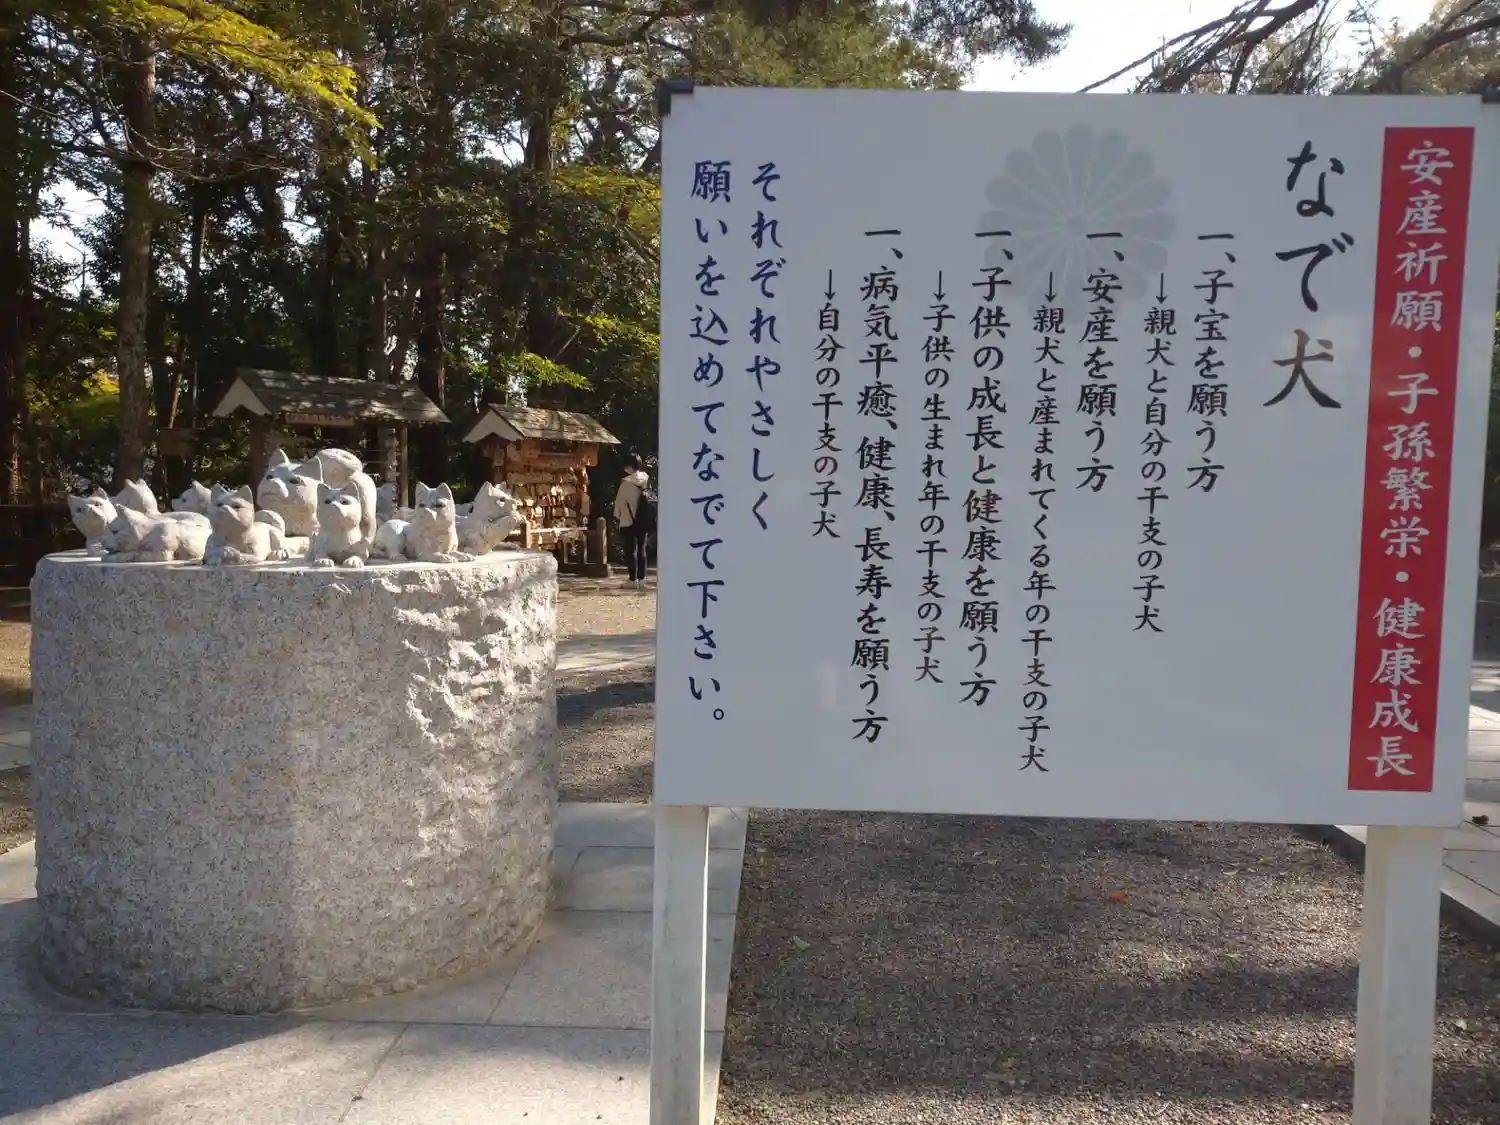 安産祈願・子孫繁栄・健康成長
なで犬
一、子宝を願う方
→親犬と自分の干支の子犬
一、安産を願う方
→親犬と産まれてくる年の干支の子犬
一、子供の成長と健康を願う方
→子供の生まれ年の干支の子犬
一、病気平癒、健康、長寿を願う方
→自分の干支の子犬
それぞれやさしく
願いを込めてなでて下さい。